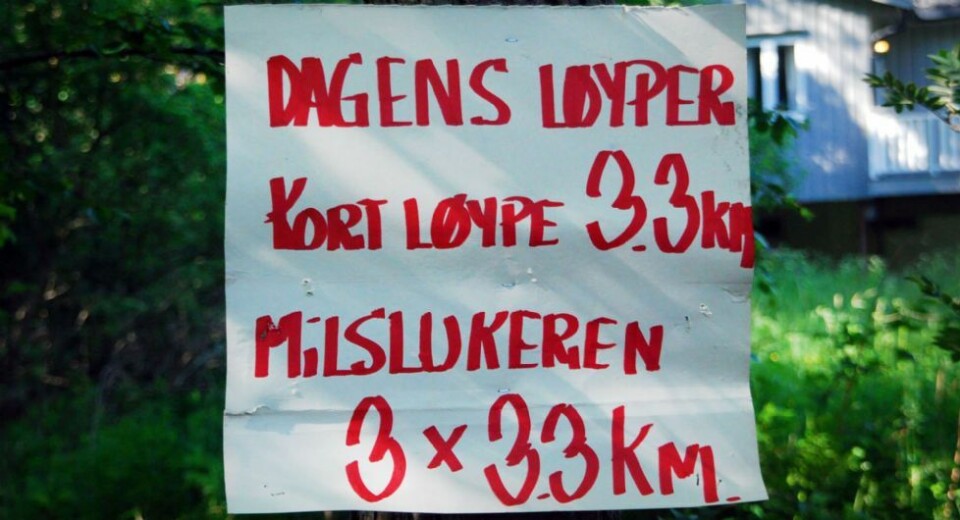 DAGENS LØYPER
KORT LØYPE 3.3km
MiLSLUKEREN
3 x 3.3 Km.